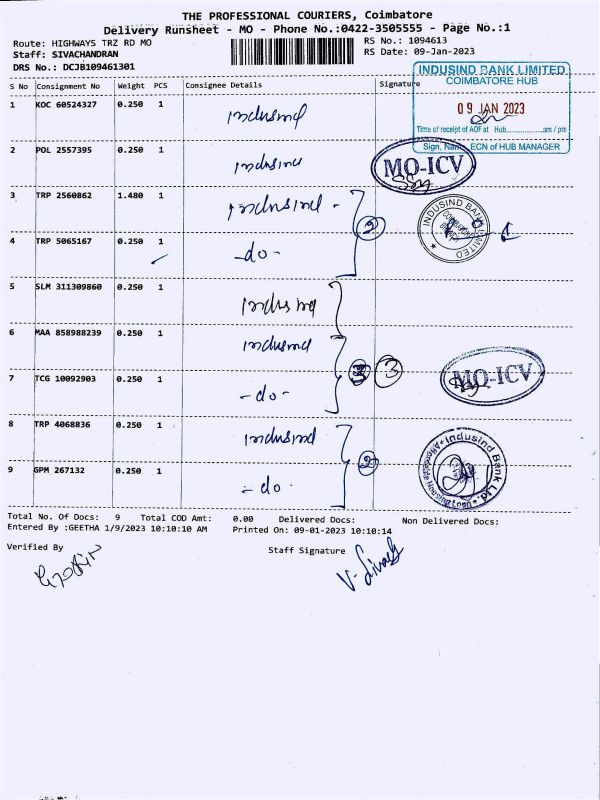 THE PROFESSIONAL COURIERS, Coimbatore
Delivery Runsheet - MO - Phone No.:0422-3505555 - Page No.:1
Route: HIGHWAYS TRZ RD MO
Staff: SIVACHANDRAN
DRS No.: DCJB109461301
RS No.: 1094613
RS Date: 09-Jan-2023
S No Consignment No Weight PCS Consignee Details Signature
INDUSIND BANK LIMITED
COIMBATORE HUB
09 JAN 2023
Time of receipt of AOF at Hub..................am / pm
Sign, Name, ECN of HUB MANAGER
1 KOC 60524327 0.250 1 Indusind
2 POL 2557395 0.250 1 Indusind
MO-ICV
3 TRP 2560862 1.480 1 Indusind -
2
INDUSIND BANK LIMITED
4 TRP 5065167 0.250 1 -do-
5 SLM 311309860 0.250 1 Indusind
6 MAA 858988239 0.250 1 Indusind
7 TCG 10092903 0.250 1 -do-
3
MO-ICV
8 TRP 4068836 0.250 1 Indusind
2
Indusind Bank Ltd.
9 GPM 267132 0.250 1 -do-
Total No. Of Docs: 9 Total COD Amt: 0.00 Delivered Docs: Non Delivered Docs:
Entered By :GEETHA 1/9/2023 10:10:10 AM Printed On: 09-01-2023 10:10:14
Verified By Staff Signature